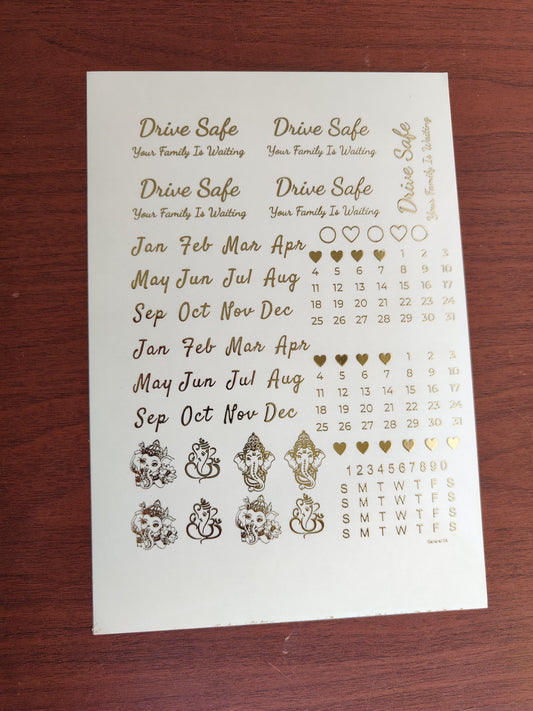 Drive Safe
Your Family Is Waiting
Drive Safe
Your Family Is Waiting
Drive Safe
Your Family Is Waiting
Drive Safe
Your Family Is Waiting
Drive Safe
Your Family Is Waiting
Jan Feb Mar Apr
May Jun Jul Aug
Sep Oct Nov Dec
1 2 3
4 5 6 7 8 9 10
11 12 13 14 15 16 17
18 19 20 21 22 23 24
25 26 27 28 29 30 31
Jan Feb Mar Apr
May Jun Jul Aug
Sep Oct Nov Dec
1 2 3
4 5 6 7 8 9 10
11 12 13 14 15 16 17
18 19 20 21 22 23 24
25 26 27 28 29 30 31
1 2 3 4 5 6 7 8 9 0
S M T W T F S
S M T W T F S
S M T W T F S
S M T W T F S